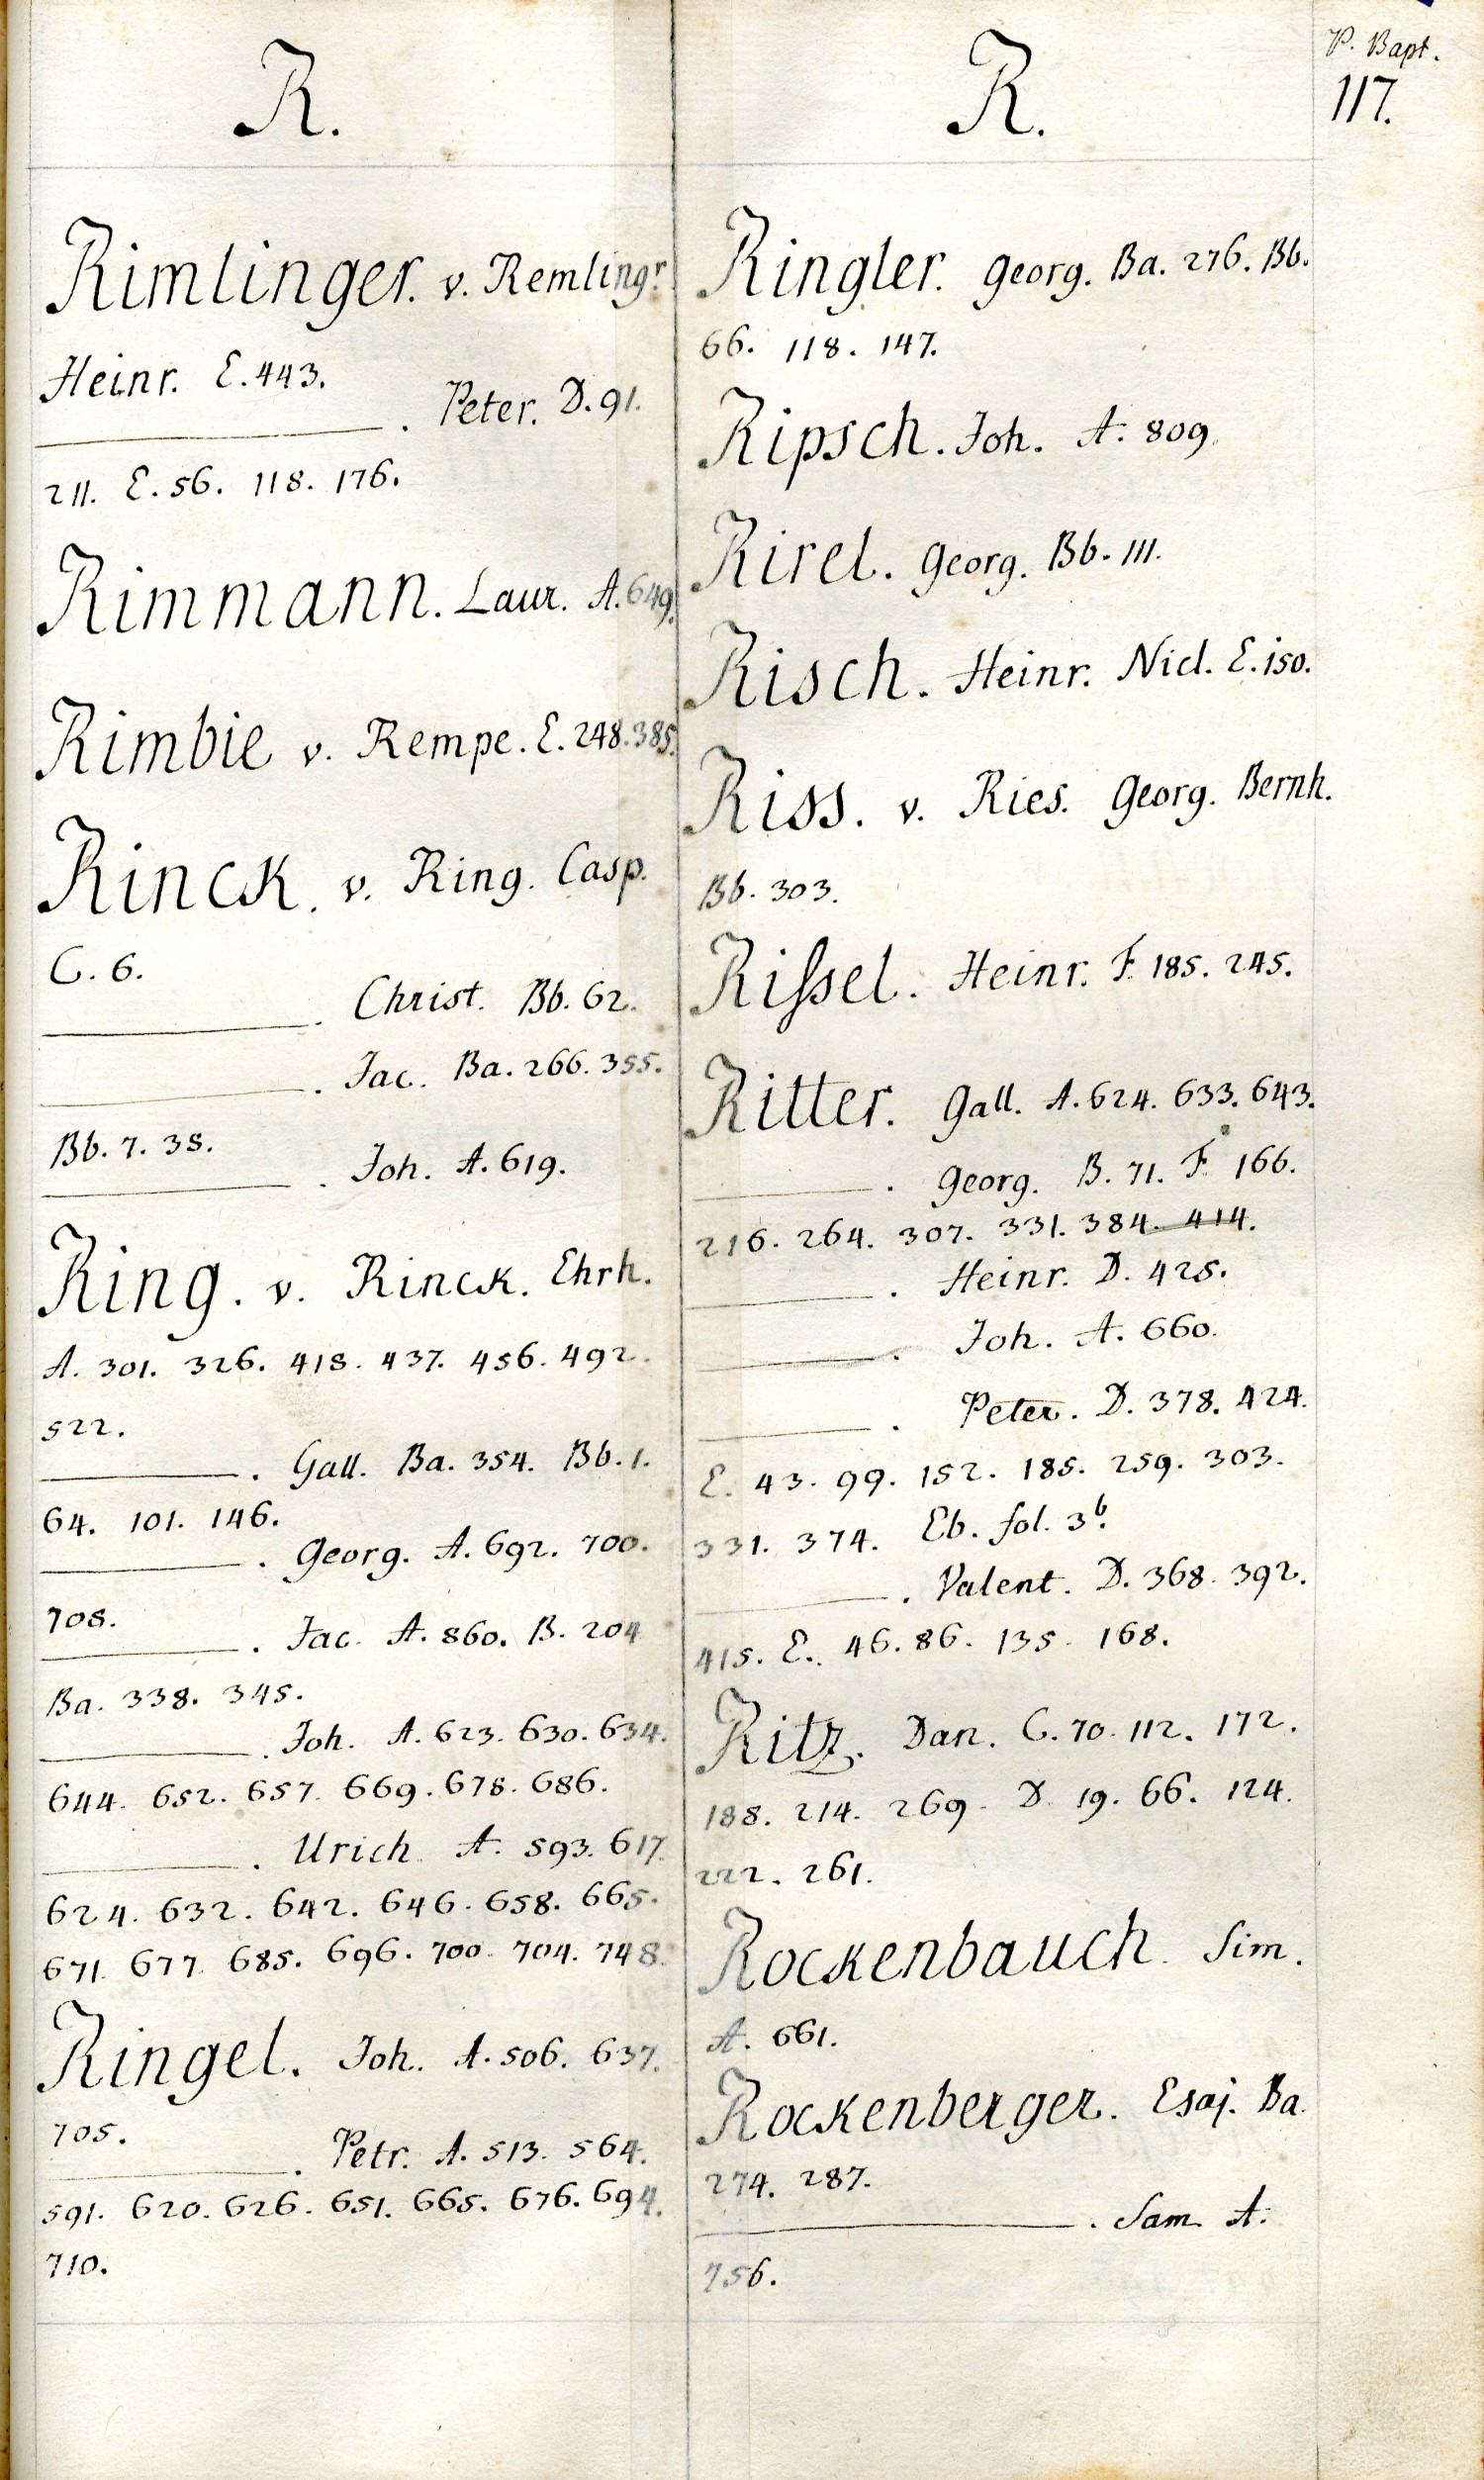 P. Bapt.
117.
R.
Rimlinger. v. Remlingr.
Heinr. E. 443.
———. Peter. D. 91.
211. E. 56. 118. 176.
Rimmann. Laur. A. 649.
Rimbie v. Rempe. E. 248. 385.
Rinck. v. Ring. Casp.
C. 6.
———. Christ. Bb. 62.
———. Jac. Ba. 266. 355.
Bb. 7. 38.
———. Joh. A. 619.
Ring. v. Rinck. Ehrh.
A. 301. 326. 418. 437. 456. 492.
522.
———. Gall. Ba. 354. Bb. 1.
64. 101. 146.
———. Georg. A. 692. 700.
708.
———. Jac. A. 860. B. 204
Ba. 338. 345.
———. Joh. A. 623. 630. 634.
644. 652. 657. 669. 678. 686.
———. Urich A. 593. 617.
624. 632. 642. 646. 658. 665.
671. 677. 685. 696. 700. 704. 748.
Ringel. Joh. A. 506. 637.
705.
———. Petr. A. 513. 564.
591. 620. 626. 651. 665. 676. 694.
710.
R.
Ringler. Georg. Ba. 276. Bb.
66. 118. 147.
Ripsch. Joh. A. 809.
Rirel. Georg. Bb. 111.
Risch. Heinr. Nicl. E. 150.
Riss. v. Ries. Georg. Bernh.
Bb. 303.
Riſsel. Heinr. F. 185. 245.
Ritter. Gall. A. 624. 633. 643.
———. Georg. B. 71. F. 166.
216. 264. 307. 331. 384. 414.
———. Heinr. D. 425.
———. Joh. A. 660.
———. Peter. D. 378. 424.
E. 43. 99. 152. 185. 259. 303.
331. 374. Eb. fol. 3b.
———. Valent. D. 368. 392.
415. E. 46. 86. 135. 168.
Ritz. Dan. C. 70. 112. 172.
188. 214. 269. D. 19. 66. 124.
222. 261.
Rockenbauch. Sim.
A. 661.
Rockenberger. Esaj. Ba.
274. 287.
———. Sam. A.
756.